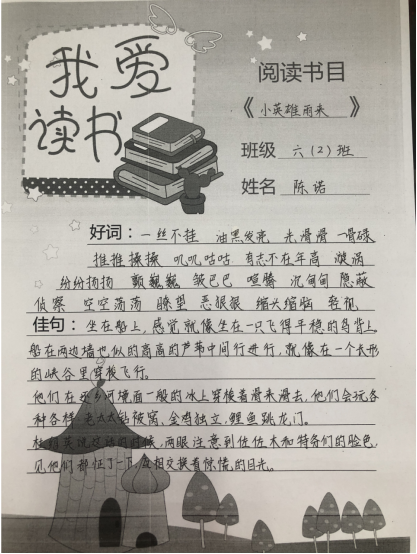 我爱
读书
阅读书目
《小英雄雨来》
班级 六(2)班
姓名 陈诺
好词：一丝不挂 油黑发亮 光滑滑 骨碌
推推搡搡 叽叽咕咕 有志不在年高 漩涡
纷纷扬扬 颤巍巍 皱巴巴 喧腾 沉甸甸 隐蔽
侦察 空空荡荡 瞭望 恶狠狠 缩头缩脑 轻视
佳句：坐在船上，感觉就像坐在一只飞得平稳的鸟背上。
船在两边墙也似的高高的芦苇中间行进行，就像在一个长形
的峡谷里穿梭飞行。
他们在 镜面一般的冰上穿梭着滑来滑去，他们会玩各
种各样 老太太钻被窝、金鸡独立、鲤鱼跳龙门。
杜绍英说这话的时候，两眼注意到佐佐木和特务们的脸色，
见他们都怔了一下，互相交换着惊慌的目光。